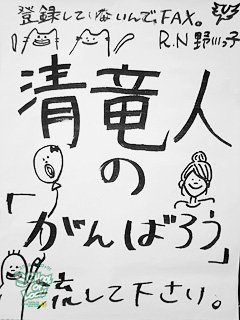 登録していないんで、FAX。
R.N 野川っ子
清竜人
の
「がんばろう」
流して下さい。